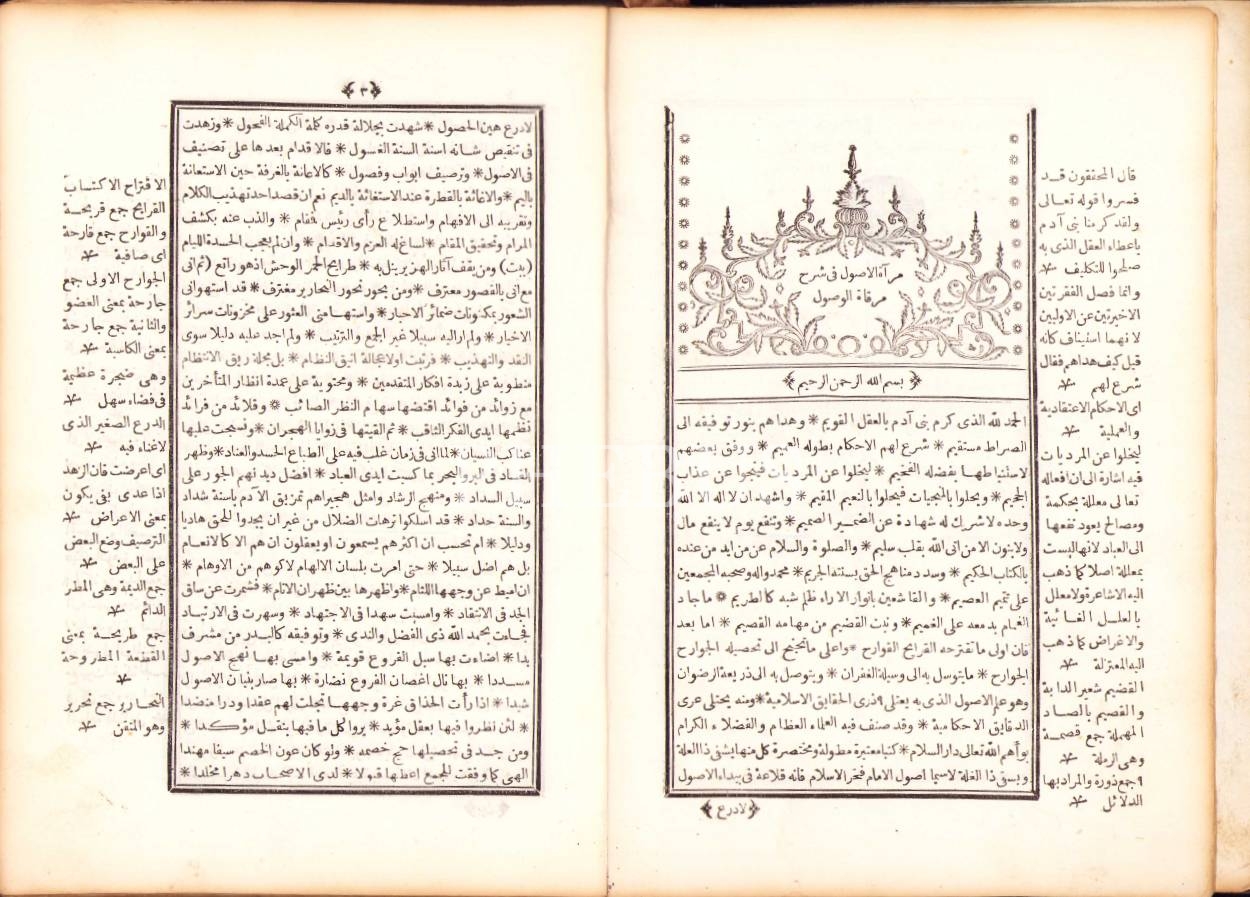 مرآة الاصول فى شرح
مرقاة الوصول
﴿ بسم الله الرحمن الرحيم ﴾
الحمد لله الذى كرم بنى آدم بالعقل القويم * وهداهم بنور توفيقه الى
الصراط مستقيم * شرع لهم الاحكام بطوله العميم * ووفق بعضهم
لاستنباطها بفضله الفخيم * ليتخلوا عن المرديات فينجوا عن عذاب
الجحيم * ويحلوا بالمنجيات فيحلوا بالنعيم المقيم * واشهد ان لا اله الا الله
وحده لا شريك له شهادة عن الضمير الصميم * وتنفع يوم لا ينفع مال
ولا بنون الا من اتى الله بقلب سليم * والصلوة والسلام عن من ايد من عنده
بالكتاب الحكيم * وسدد مناهج الحق بسنته الجريم * محمد واله وصحبه المجمعين
على تتميم العصيم * والقاشعين بانوار الاراء ظلم شبه كالطريم * ما جاد
الغمام بدمعه على الغميم * ونبت القضيم من مهامه القصيم * اما بعد
فان اولى ما تقترحه القرايح القوارح * واعلى ما تجنح الى تحصيله الجوارح
الجوارح * ما يتوسل به الى وسيلة الغفران * ويتوصل به الى ذريعة الرضوان
وهو علم الاصول الذى به يعتلى ٩ ذرى الحقايق الاسلامية * ومنه يجتلى عرى
الدقايق الاحكامية * وقد صنف فيه العلماء العظام والفضلاء الكرام
بوأهم الله تعالى دار السلام * كتبا معتبرة مطولة ومختصرة كل منها يشفى ذا العلة
ويسقى ذا الغلة لاسيما اصول الامام فخر الاسلام فانه قلاعة فى بيداء الاصول
﴿ لادرع ﴾
قال المحققون قد
فسروا قوله تعالى
ولقد كرمنا بنى آدم
باعطاء العقل الذى به
صلحوا للتكليف *
وانما فصل الفقرتين
الاخيرتين عن الاوليين
لانهما استيناف كانه
قيل كيف هداهم فقال
شرع لهم *
اى الاحكام الاعتقادية
والعملية *
ليتخلوا عن المرديات
فيه اشارة الى ان افعاله
تعالى معللة بحكمة
ومصالح يعود نفعها
الى العباد لانها ليست
بمعللة اصلا كما ذهب
اليه الاشاعرة ولا معلل
بالعلل الغائية
والاغراض كما ذهب
اليه المعتزلة *
القضيم شعير الدابة
والقصيم بالصاد
المهملة جمع قصمة
وهى الرملة *
٩ جمع ذورة والمراد بها
الدلائل *
﴿ ٣ ﴾
لادرع هين الحصول * شهدت بجلالة قدره كلمة الكملة الفحول * وزهدت
فى تنقيص شانه اسنة السنة الغسول * فالاقدام بعدها على تصنيف
فى الاصول * وترصيف ابواب وفصول * كالاعانة بالغرفة حين الاستعانة
باليم * والاغاثة بالقطرة عند الاستغاثة بالديم نعم ان قصد احد تهذيب الكلام
وتقريبه الى الافهام واستطلاع رأى رئيس فقام * والذب عنه بكشف
المرام وتحقيق المقام * لساغ له العزم والاقدام * وان لم يعجب الحسدة اللئام
(بيت) ومن يقف آثار الهزبر ينل به * طرايح الحمر الوحش اذ هو راتع (ثم انى
مع انى بالقصور معترف * ومن بحور نحور النحارير مغترف * قد استهوانى
الشعور بمكنونات ضمائر الاحبار * واستهامنى العثور على مخزونات سرائر
الاخبار * ولم ار اليه سبيلا غير الجمع والترتيب * ولم اجد عليه دليلا سوى
النقد والتهذيب * فرتبت اولا عجالة انيق النظام * بل مجلة ريق الانتظام
منطوية على زبدة افكار المتقدمين * ومحتوية على عمدة انظار المتأخرين
مع زوائد من فوائد اقتضها سهام النظر الصائب * وقلائد من فرائد
نظمها ايدى الفكر الثاقب * ثم القيتها فى زوايا الهجران * ونسجت عليها
عناكب النسيان * لما انى فى زمان غلب فيه على الطباع الحسد والعناد * وظهر
الفساد فى البر والبحر بما كسبت ايدى العباد * افضل ديدنهم الجور على
سبيل السداد * ومنهج الرشاد وامثل هجيرهم تمزيق الآدم باسنة شداد
والسنة حداد * قد اسلكوا ترهات الضلال من غير ان يجدوا للحق هاديا
ودليلا * ام تحسب ان اكثرهم يسمعون او يعقلون ان هم الا كالانعام
بل هم اضل سبيلا * حتى امرت بلسان الالهام لا كوهم من الاوهام *
ان اميط عن وجهها اللثام * واظهرها بين ظهران الانام * فشمرت عن ساق
الجد فى الانتقاد * وامسيت سهدا فى الاجتهاد * وسهرت فى الارتياد
فجاءت بحمد الله ذى الفضل والندى * وتوفيقه كالبدر من مشرف
بدا * اضاءت بها سبل الفروع قويمة * وامسى بها نهج الاصول
مسددا * بها نال اغصان الفروع نضارة * بها صار بنيان الاصول
شيدا * اذا رأت الحذاق غرة وجهها * تجلت لهم عقدا ودرا منضدا
* لئن نظروا فيها بعقل مؤيد * يروا كل ما فيها بنقل مؤكدا *
ومن جد فى تحصيلها حج خصمه * ولو كان عون الخصم سيفا مهندا
الهى كما وفقت للجمع اعطها قبولا * لدى الاصحاب دهرا مخلدا *
الاقتراح الاكتساب
القرايح جمع قريحة
والقوارح جمع قارحة
اى صافية *
الجوارح الاولى جمع
جارحة بمعنى العضو
والثانية جمع جارحة
بمعنى الكاسبة *
وهى صخرة عظيمة
فى فضاء سهل *
الدرع الصغير الذى
لاغناء فيه *
اى اعرضت فان الزهد
اذا عدى بفى يكون
بمعنى الاعراض *
الترصيف وضع البعض
على البعض *
جمع الديمة وهى المطر
الدائم *
جمع طريحة بمعنى
القطعة المطروحة
*
النحارير جمع نحرير
وهو المتقن *